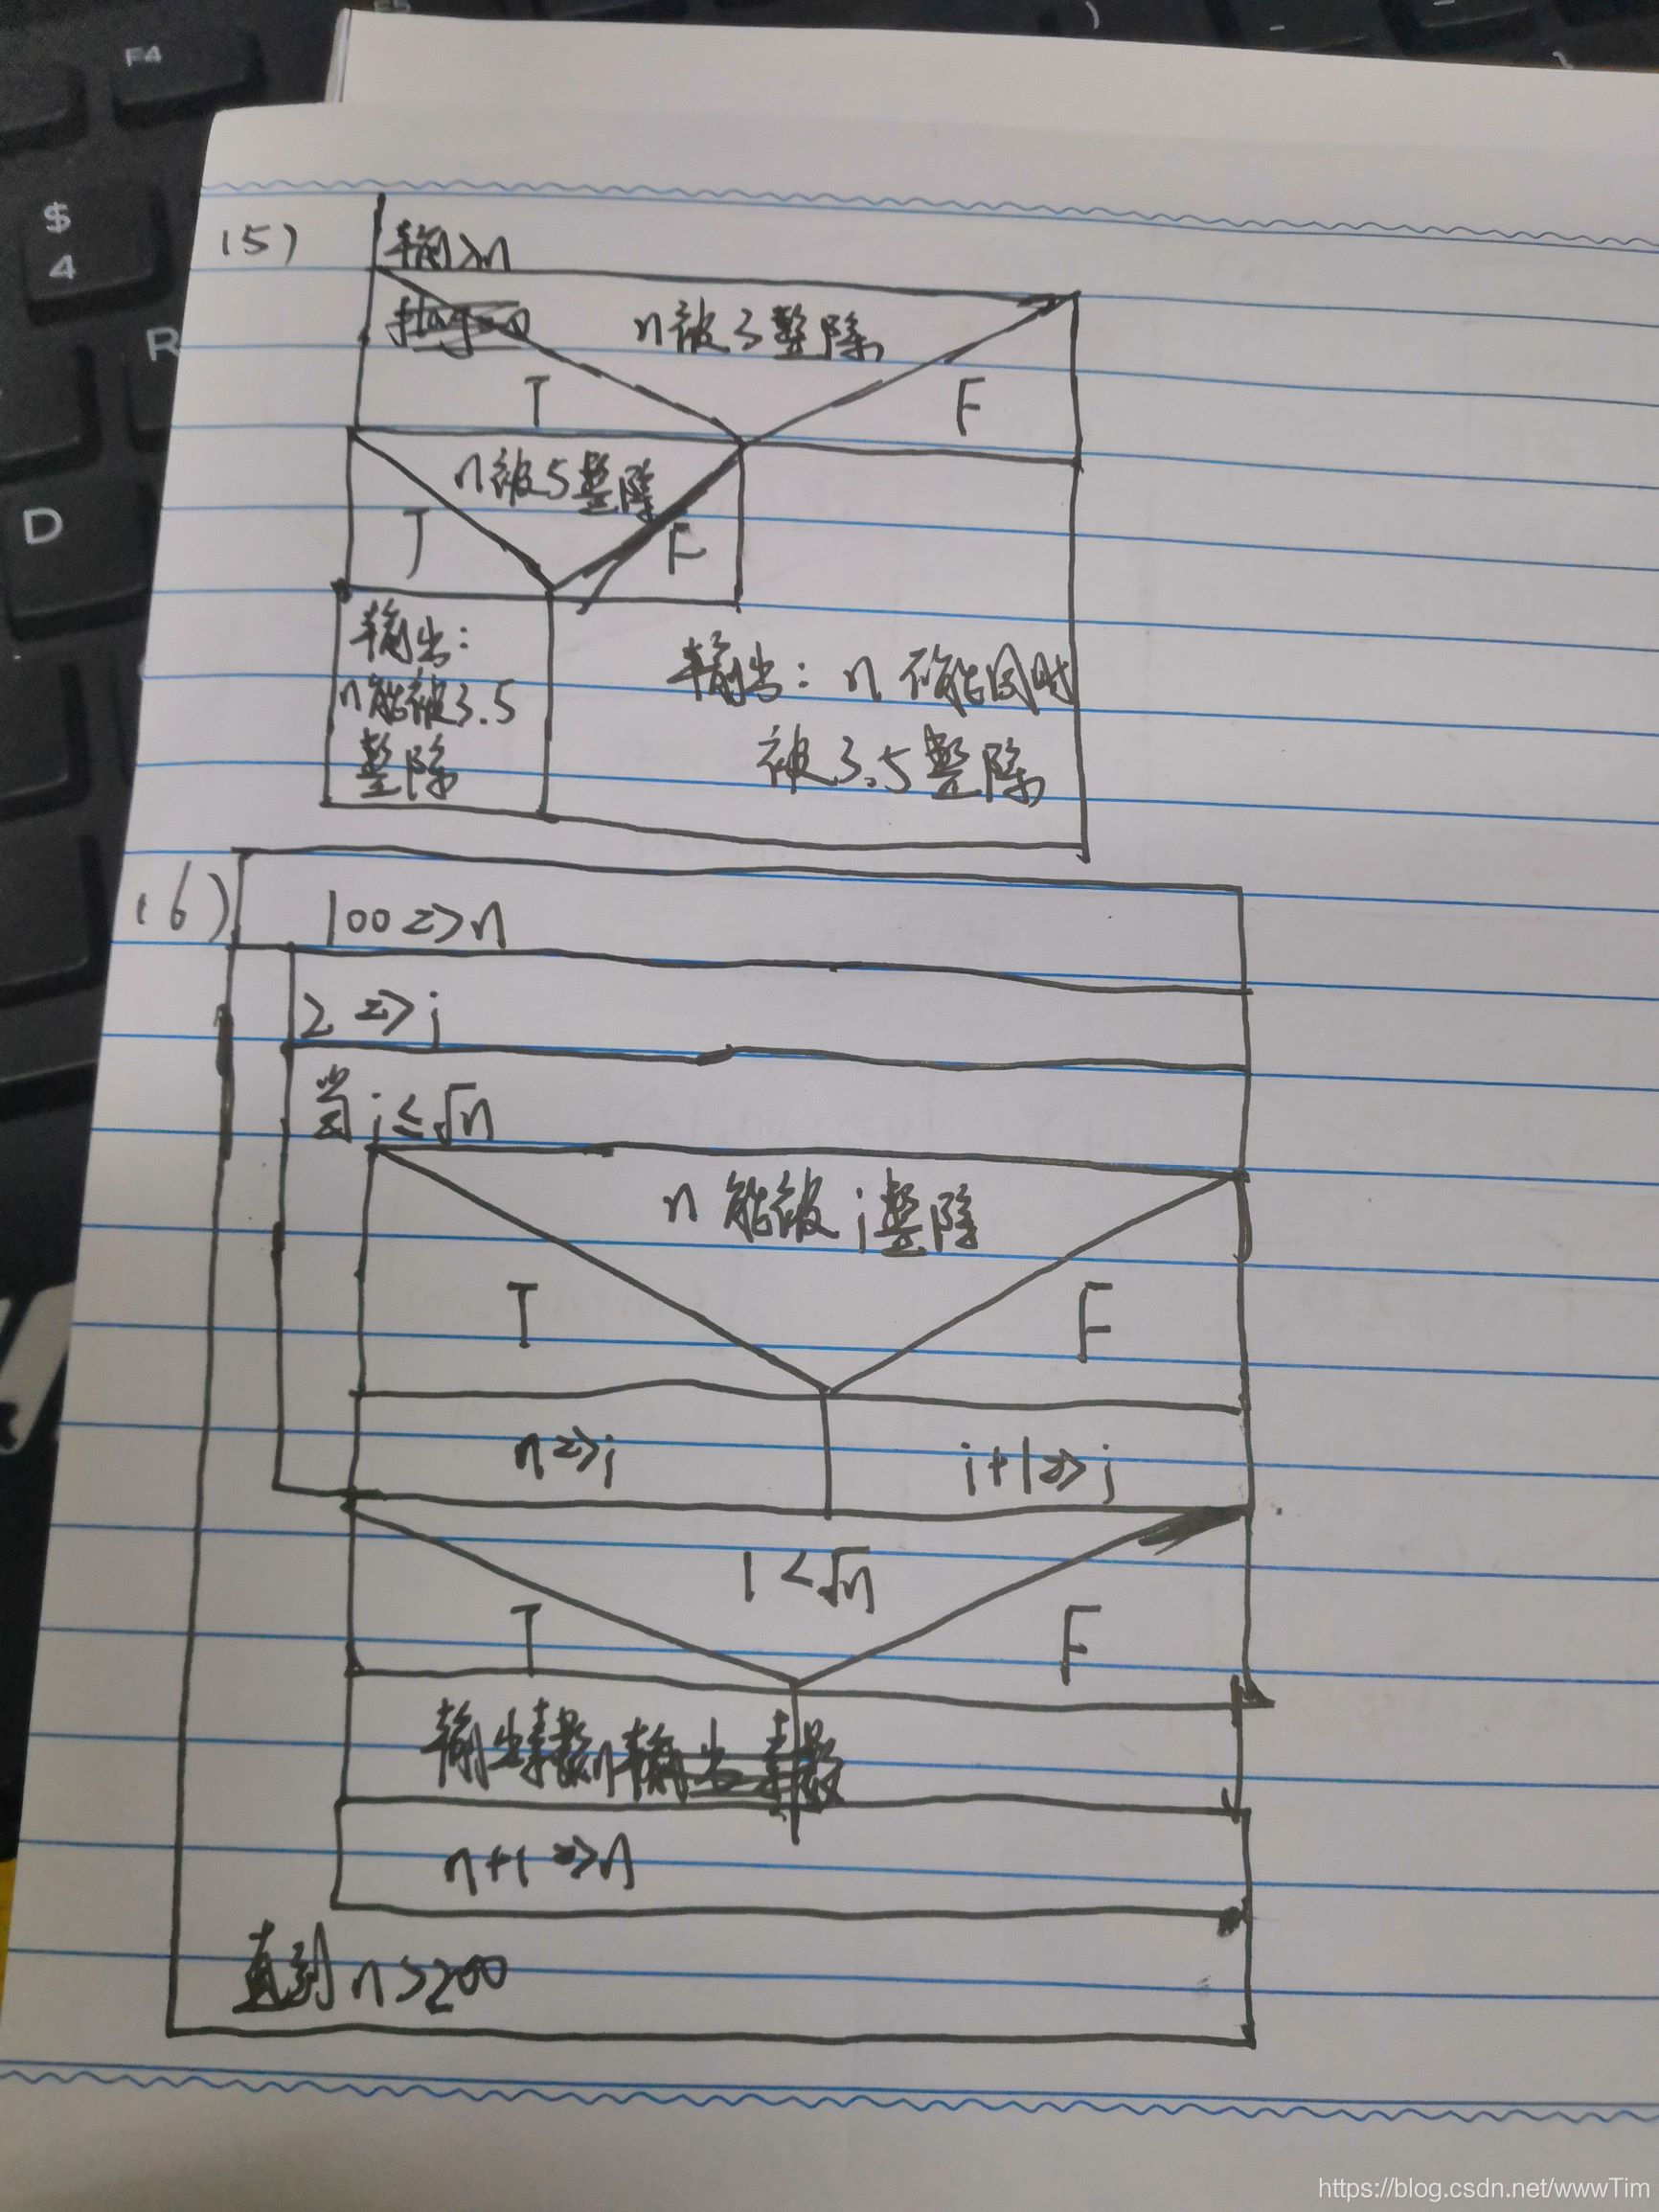 F4
$
4
R
D
(5)
输入n
n被3整除
T
F
n被5整除
T
F
输出:
n能被3.5
整除
输出: n 不能同时
被3.5整除
(6)
100=>n
2 => i
当 i≤√n
n 能被 i整除
T
F
n=>i
i+1=>i
i<√n
T
F
输出素数n
n+1=>n
直到n>200
https://blog.csdn.net/wwwTim